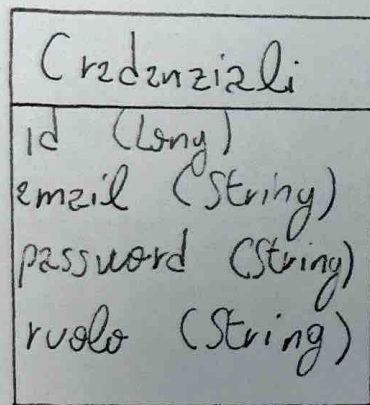 Credenziali
id (Long)
email (String)
password (String)
ruolo (String)